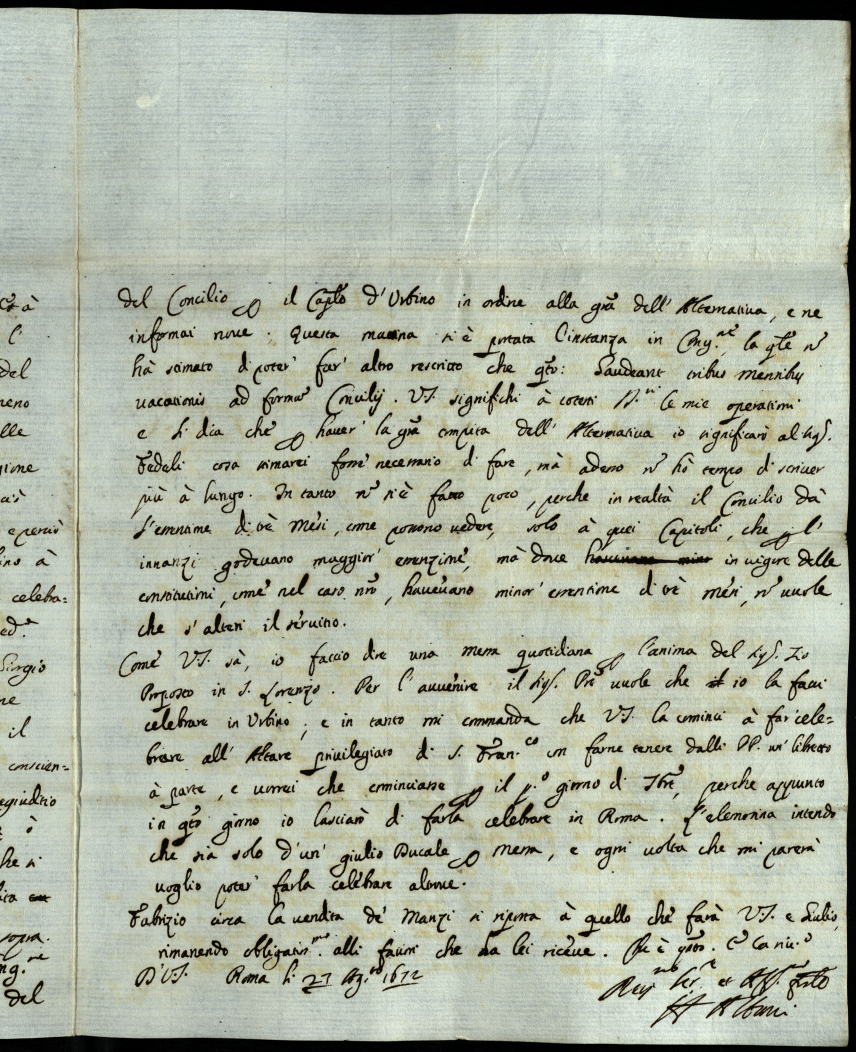 del Concilio il Caplo d'Urbino in ordine alla gra dell'Alternativa, e ne
informai nove. Questa matina si è portata l'instanza in Cong.ne, la qle nō
hà stimato di poter' far' altro rescritto che qto: Gaudeant tribus mensibus
vacationis ad formā Concilij. VS. significhi à cotesti SS.ri le mie operationi
e li dica che haver' la gra compita dell'Alternativa io significarò al Sigr.
Fedeli cosa stimarei fosse necessario di fare, mà adesso nō hò tempo di scriver
più à lungo. In tanto nō si è fatto poco, perche in realtà il Concilio dà
l'esentione di trè mesi, come possono vedere, solo à quei Capitoli, che l'
innanzi godevano maggior' esenzione, mà dove in vigore delle
constitutioni, come nel caso nrō, havevano minor' esentione di trè mesi, nō vuole
che s'alteri il servitio.
Come VS. sà, io faccio dire una messa quotidiana l'anima del Sigr. Zio
Proposto in S. Lorenzo. Per l'avvenire il Sigr. Pre vuole che io la facci
celebrare in Urbino; e in tanto mi commanda che VS. la cominci à far cele=
brare all'Altare privilegiato di S. Fran.co con farne tenere dalli PP. un' libretto
à parte, e vorrei che cominciasse il p.o giorno di 7bre, perche appunto
in qto giorno io lasciarò di farla celebrare in Roma. L'elemosina intendo
che sia solo d'un' giulio Ducale messa, e ogni volta che mi parerà
voglio poter' farla celebrare altrove.
Fabrizio circa la vendita de' Manzi si riporta à quello che farà VS. e Giulio,
rimanendo obligatis.mo alli favori che da lei riceve. Che è qto.
D VS. Roma li 27 Ag.to 1672
et Aff.
Albani
del
meno
elle
gione
e perciò
celebra=
Giorgio
il
conscien=
egiuditio
he si
sopra.
del